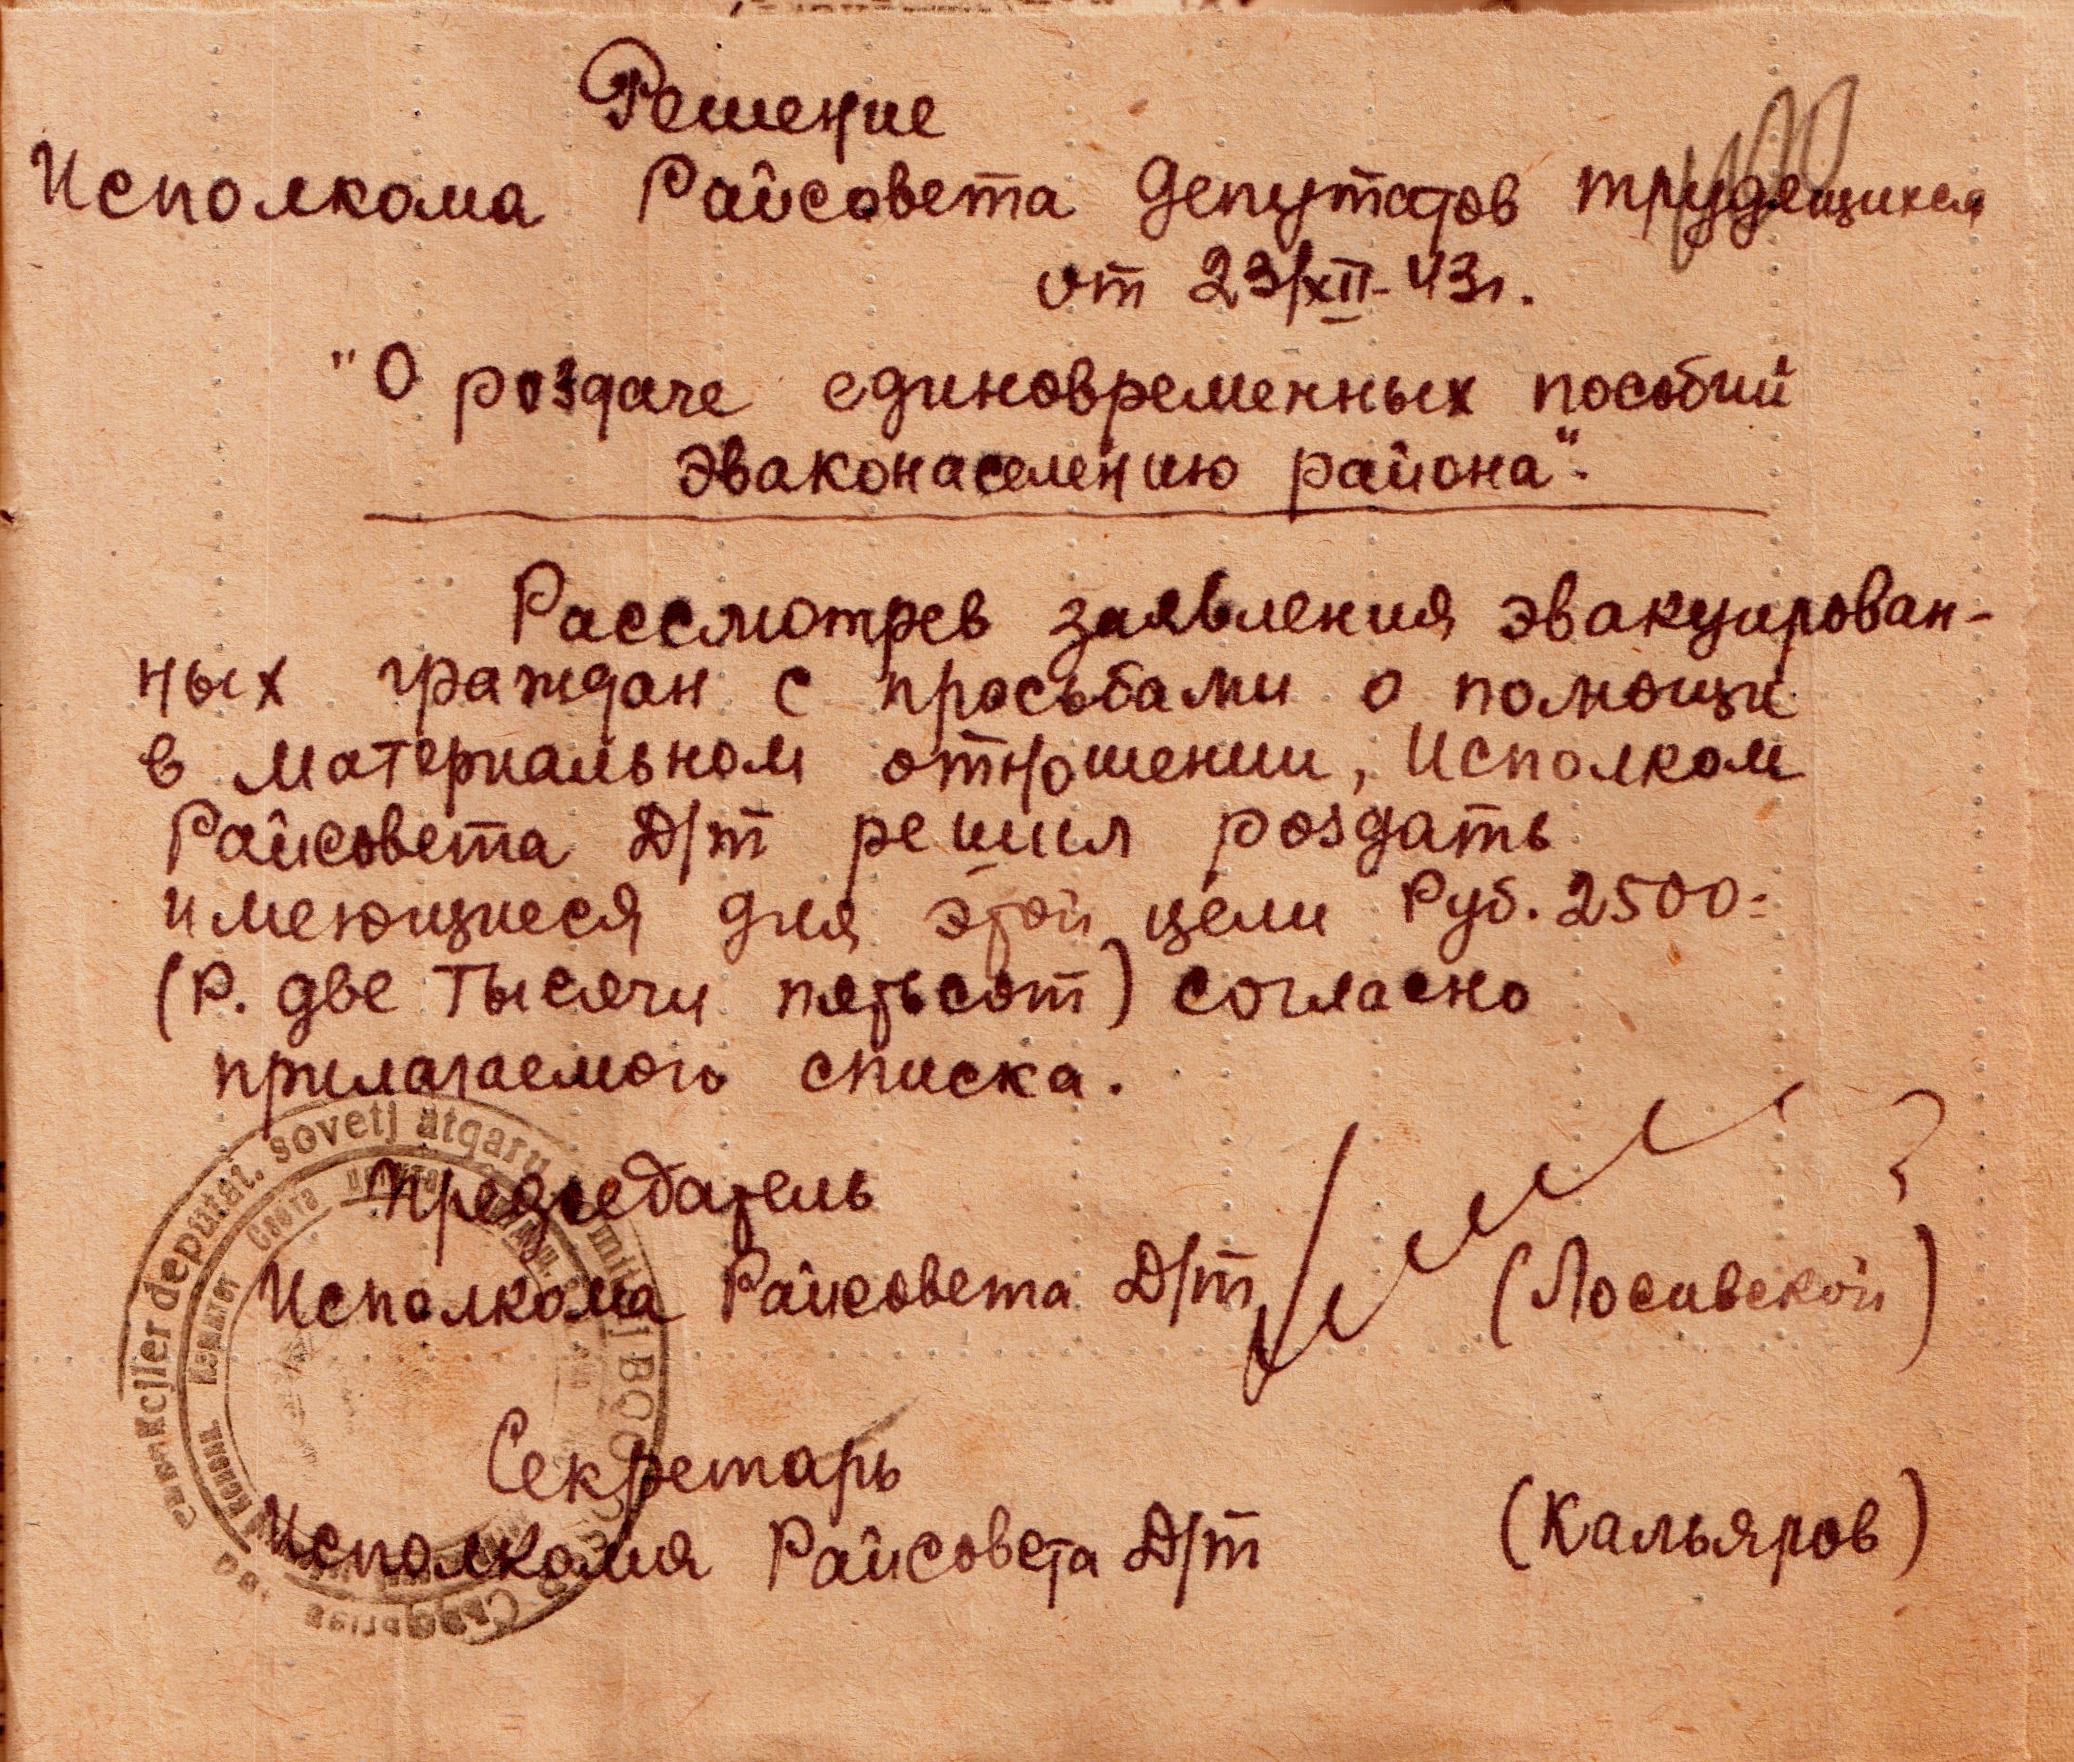 Решение
Исполкома Райсовета депутатов трудящихся
от 23/XII-43г.
"О роздаче единовременных пособий
эваконаселению района".
Рассмотрев заявления эвакуирован-
ных граждан с просьбами о помощи
в материальном отношении, Исполком
Райсовета Д/т решил роздать
имеющиеся для этой цели Руб. 2500=
(Р. две тысячи пятьсот) согласно
прилагаемого списка.
Председатель
Исполкома Райсовета Д/т (Лосавской)
Секретарь
Исполкома Райсовета Д/т (Кальяров)
deputat. sovetj atqaru